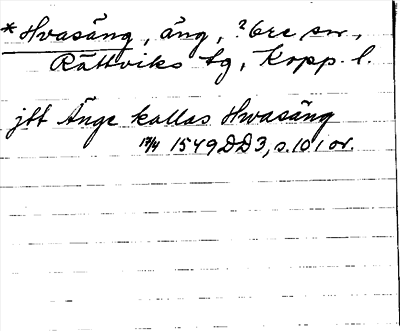 *Hvasäng, äng, ?Ore sn,
Rättviks tg, Kopp. l.
jtt Änge kallas Hwasäng
17/4 1549 DD3, s. 101 or.